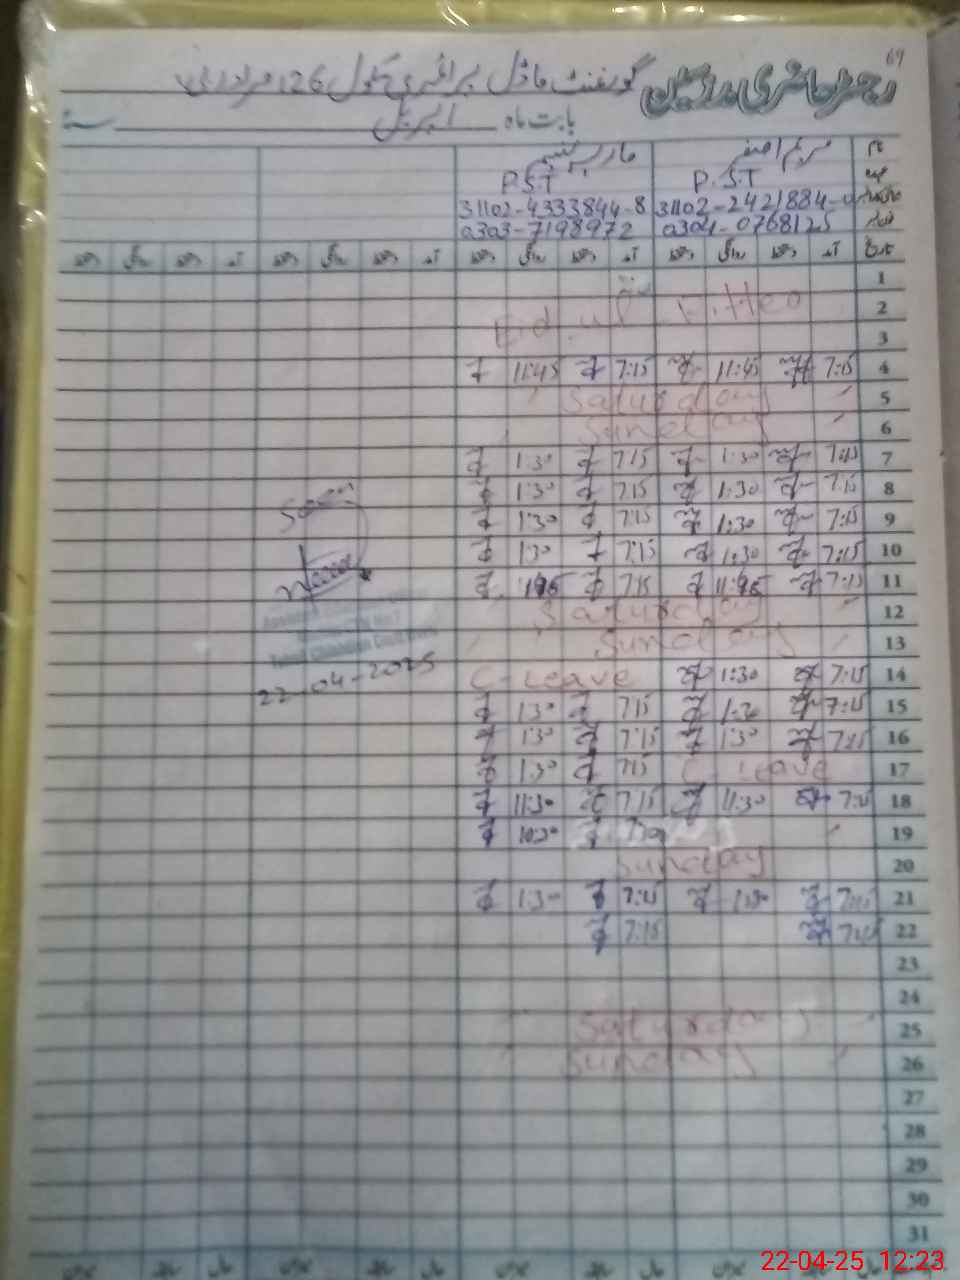 69
رجسٹر حاضری مدرسین گورنمنٹ ماڈل پرائمری سکول 126 مراد
بابت ماہ اپریل
نام مریم اصغر
عہدہ P.S.T P.S.T
31102-2421884-0 31102-4333844-8
0304-0768125 0303-7198972
تاریخ آمد دستخط روانگی دستخط آمد دستخط روانگی دستخط آمد دستخط روانگی دستخط آمد دستخط روانگی دستخط
1
2 Eid ul Fitter
3
4 7:15 11:45 7:15 11:45
5 Saturday
6 Sunday
7 7:15 1:30 7:15 1:30
8 7:15 1:30 7:15 1:30
9 7:15 1:30 7:15 1:30
10 7:15 1:30 7:15 1:30
11 7:15 11:45 7:15
12 Saturday
13 Sunday
14 7:15 1:30 C-Leave
15 7:15 1:30 7:15 1:30
16 7:15 1:30 7:15 1:30
17 C-Leave 7:15 1:30
18 7:15 11:30 7:15 11:30
19 7:30 10:30
20 Sunday
21 7:15 1:30 7:15 1:30
22 7:15 7:15
23
24
25 Saturday
26 Sunday
27
28
29
30
31
Seen
22-04-2025
22-04-25 12:23